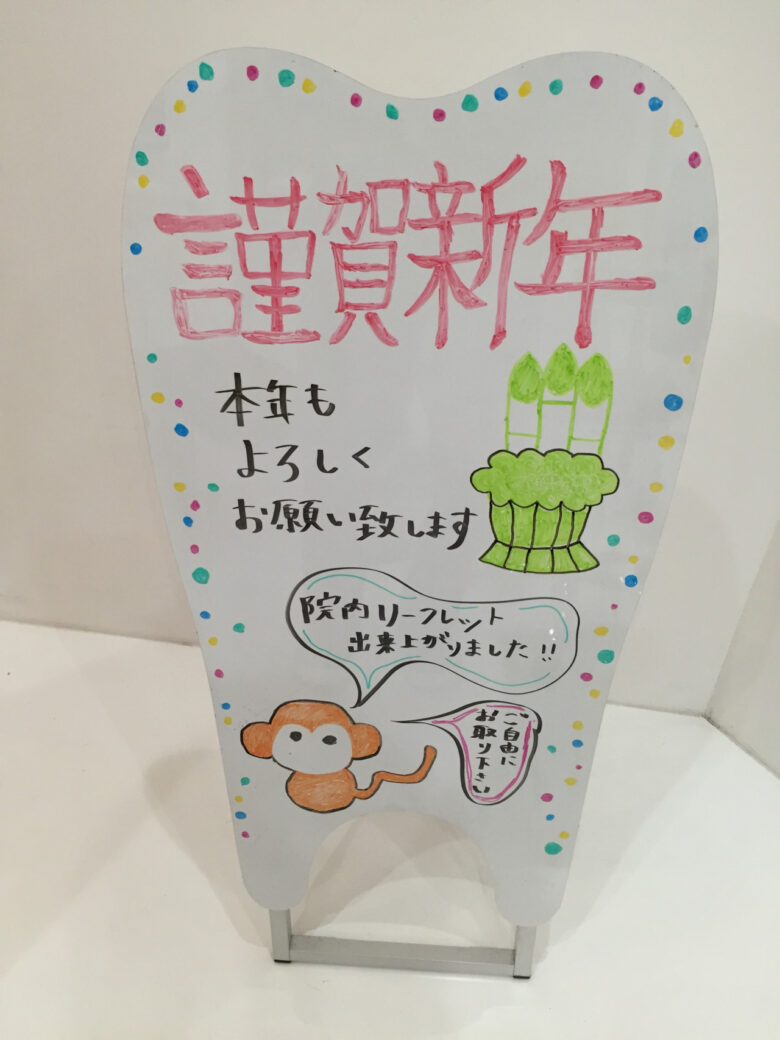 謹賀新年
本年も
よろしく
お願い致します
院内リーフレット
出来上がりました!!
ご自由に
お取り下さい